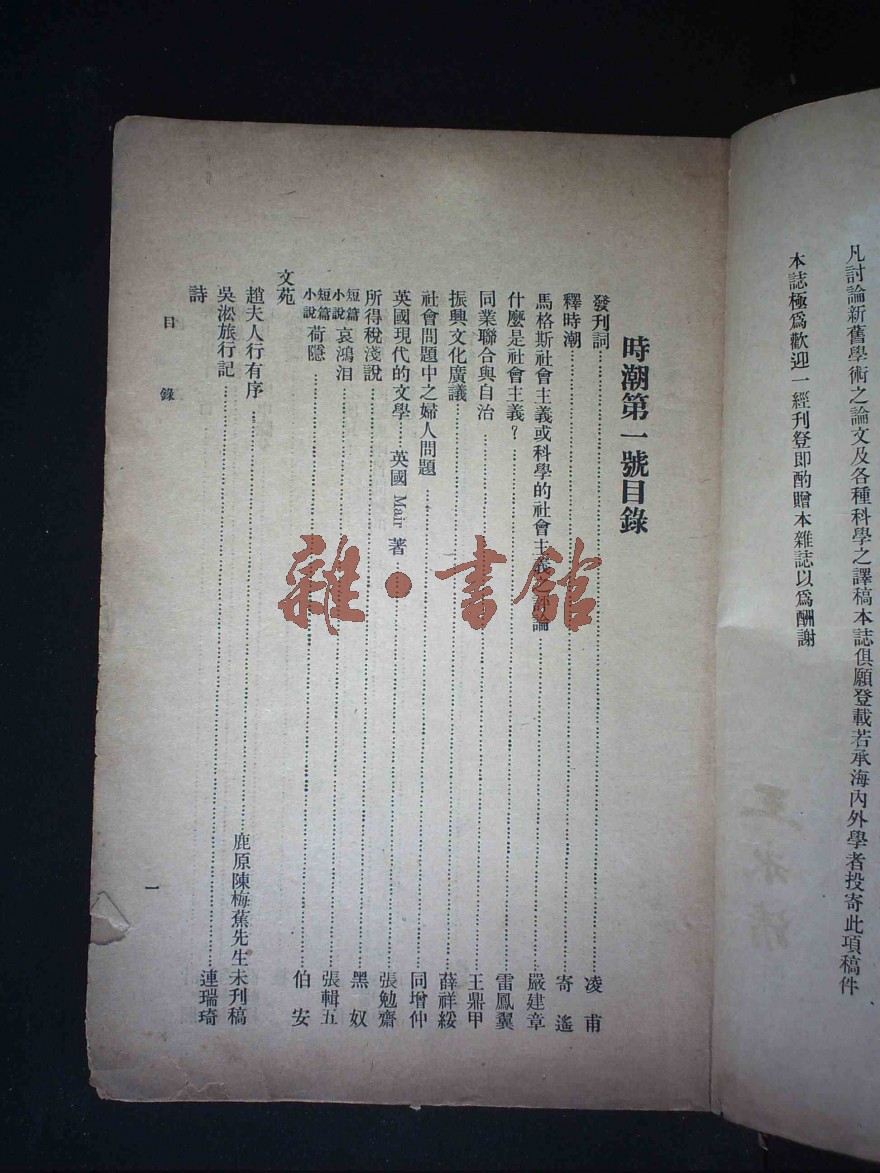 凡討論新舊學術之論文及各種科學之譯稿本誌俱願登載若承海內外學者投寄此項稿件
本誌極爲歡迎一經刊登即酌贈本雜誌以爲酬謝
時潮第一號目錄
發刊詞 凌甫
釋時潮 寄遙
馬格斯社會主義或科學的社會主義之評論 嚴建章
什麼是社會主義? 雷鳳翼
同業聯合與自治 王鼎甲
振興文化廣議 薛祥綏
社會問題中之婦人問題 同增仲
英國現代的文學 英國 Mair 著 張勉齋
所得稅淺說 黑奴
短篇小說 哀鴻泪 張輯五
短篇小說 荷隱 伯安
文苑
趙夫人行有序 鹿原陳梅蕉先生未刊稿
吳淞旅行記 連瑞琦
詩
目錄
一
雜·書館